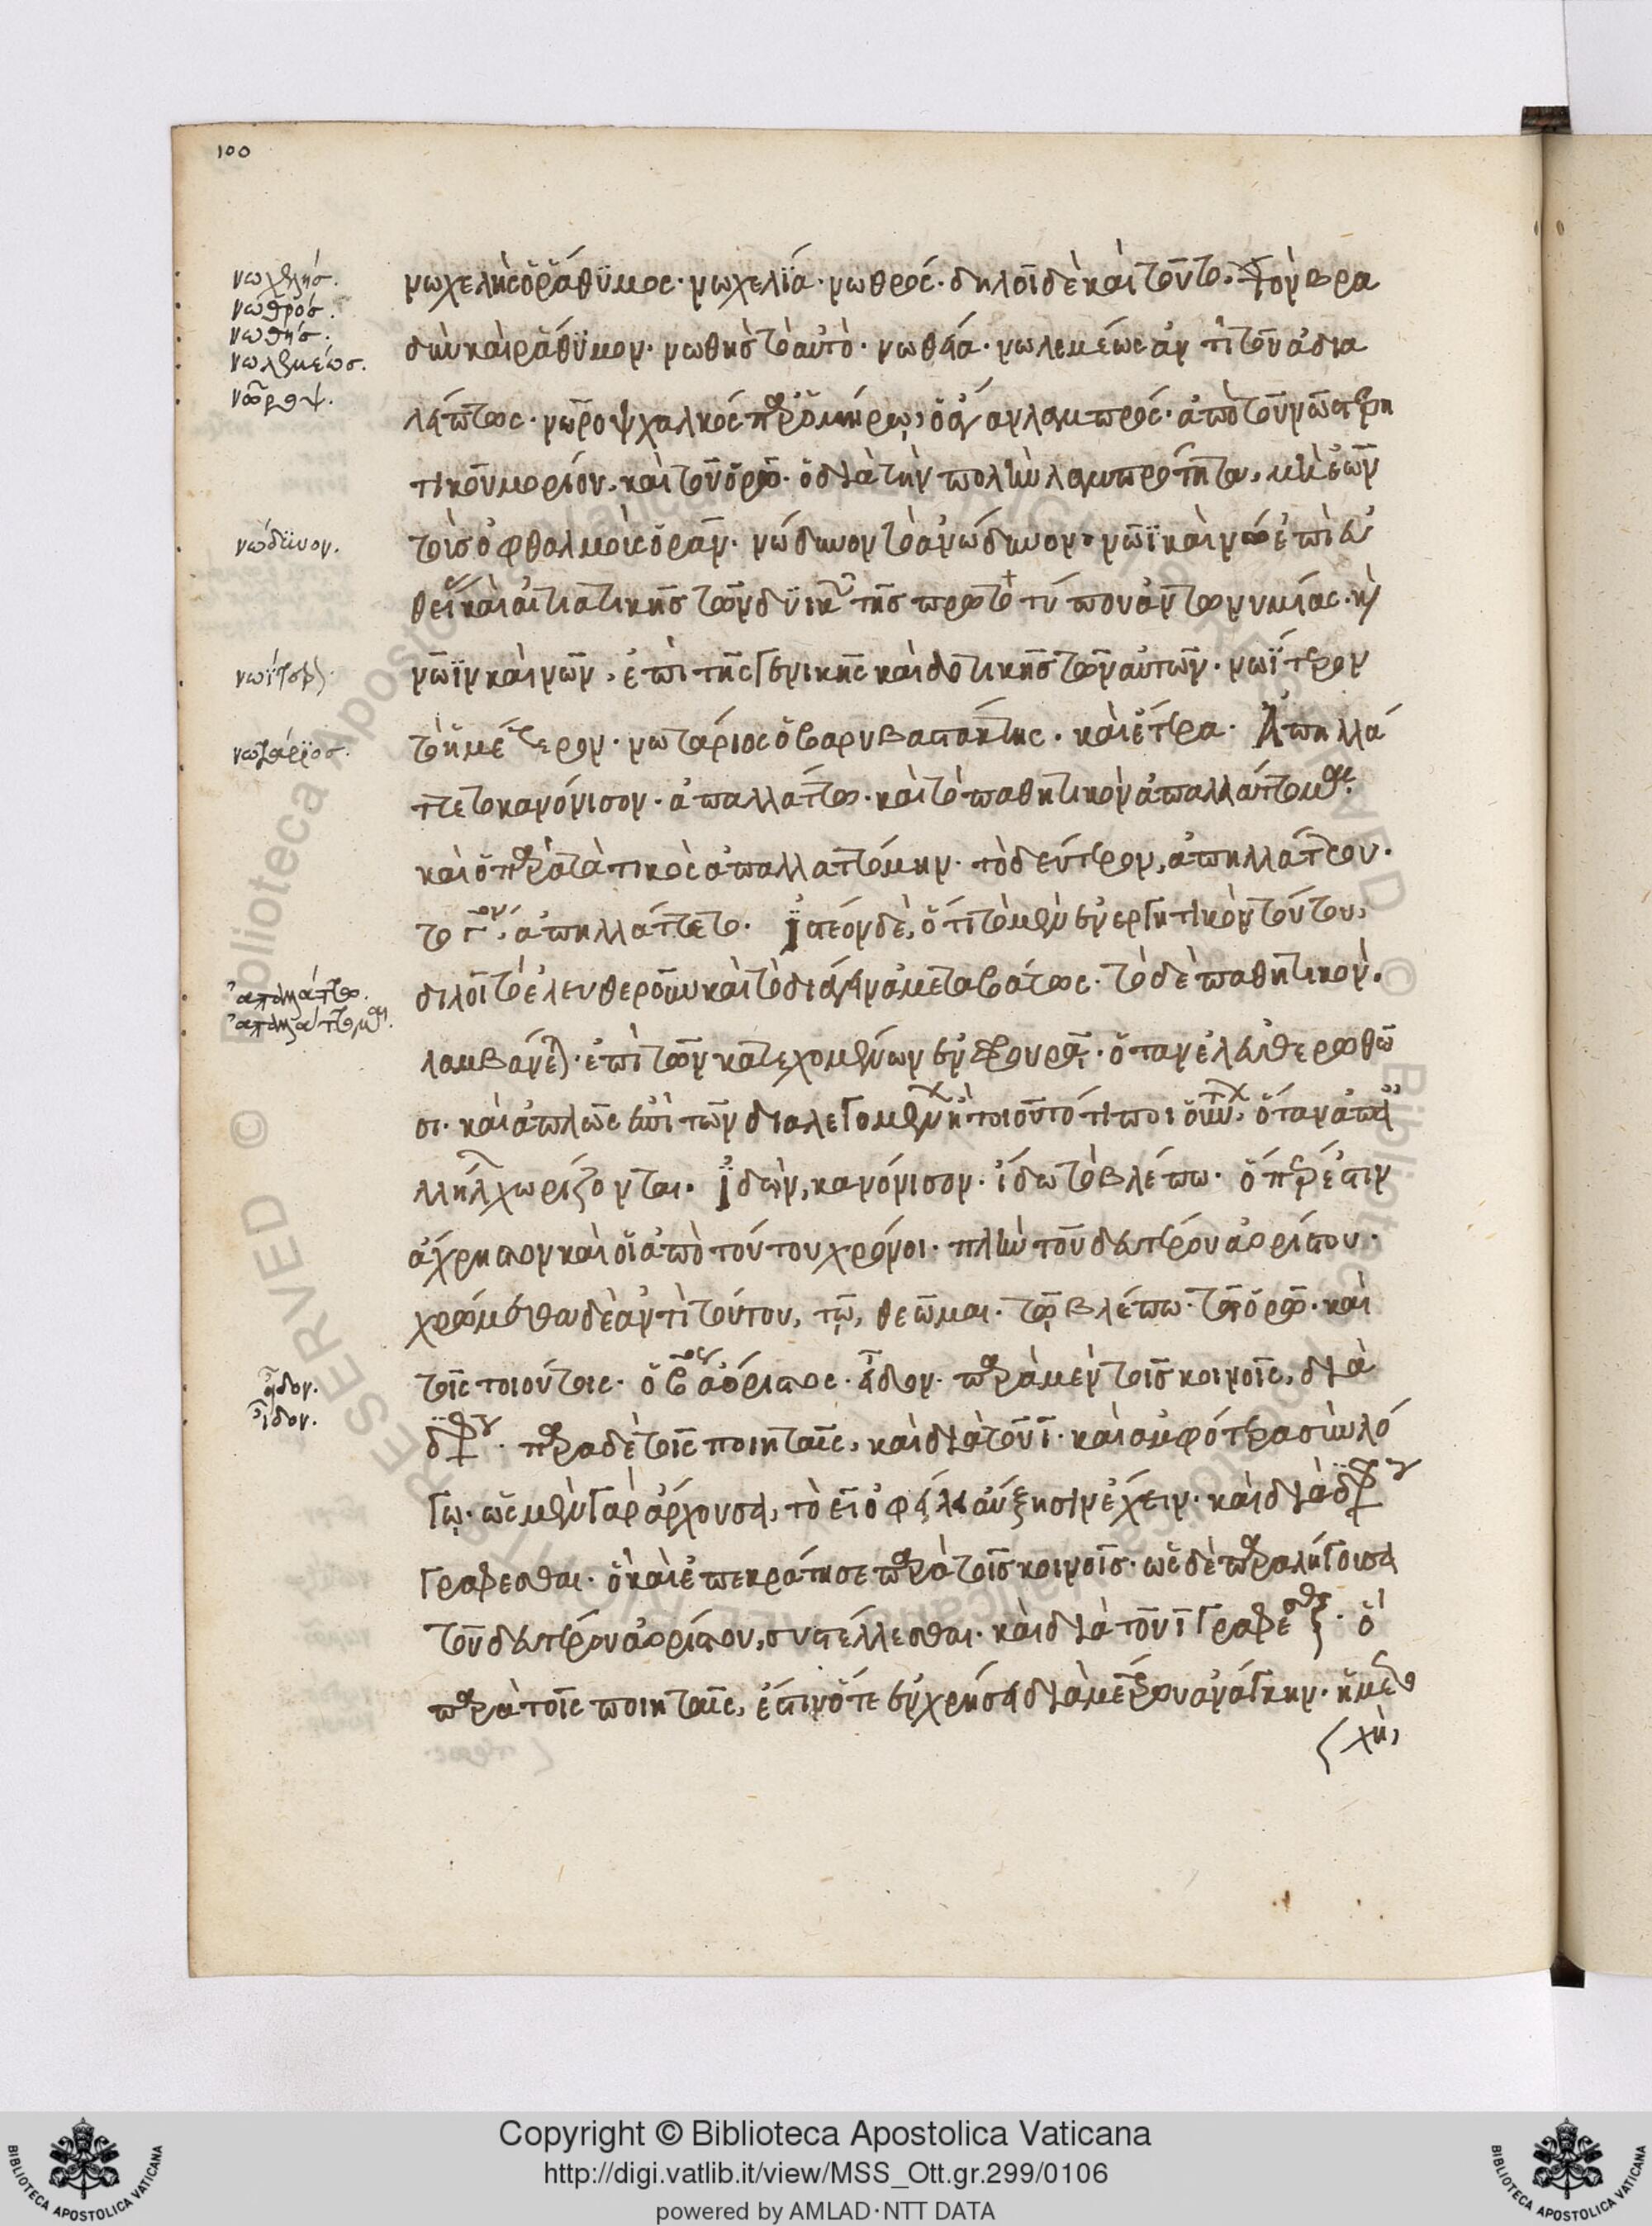 100
νωχελής.
νωθρός.
νωθής.
νωλεμέως.
νῶροψ.
νωχελὴς ὁ ῥάθϋμος· νωχελϊά· νωθρός· δηλοῖ δὲ καὶ τοῦτο, τὸν βρα
δὺν καὶ ῥάθϋμον· νωθὴς τὸ αὐτό· νωθεία· νωλεμέως ἀντὶ τοῦ ἀδια
λείπτως· νῶροψ χαλκὸς παρ' ὁμήρω, ὁ ἄγαν λαμπρός· ἀπὸ τοῦ νῶ στερη
τικοῦ μορίου, καὶ τοῦ ὁρῶ· ὁ διὰ τὴν πολλὴν λαμπρότητα, μὴ ἐῶν
νώδϋνον.
τοῖς ὀφθαλμοῖς ὁρᾶν· νώδυνον τὸ ἀνώδυνον· νῶϊ καὶ νὼ ἐπὶ εὐ
θείας καὶ αἰτιατικῆς τῶν δϋικῶν τῆς πρωτοτύπου ἀντωνυμίας· καὶ
νωΐτερον
νῶϊν καὶ νῶν, ἐπὶ τῆς γενικῆς καὶ δοτικῆς τῶν αὐτῶν· νωΐτερον
νωτάρϊος.
τὸ ἡμέτερον· νωτάριος ὁ βαρυβαστάκτης· καὶ ἕτερα· Ἀπηλλά
ττετο κανόνισον· ἀπαλλάττω· καὶ τὸ παθητικὸν ἀπαλλάττομαι·
καὶ ὁ παρατατικὸς ἀπαλλαττόμην· τὸ δεύτερον, ἀπηλλάττου·
τὸ γον, ἀπηλλάττετο· ἰστέον δὲ, ὅτι τὸ μὲν ἐνεργητικὸν τούτου,
ἀπαλλάττω.
ἀπαλλάττομαι.
διλοῖ τὸ ἐλευθεροῦν καὶ τὸ διάγειν ἀμεταβάτως· τὸ δὲ παθητικὸν,
λαμβάνεται· ἐπὶ τῶν κατεχομένων ἐν φρουρᾶ· ὅταν ἐλευθερωθῶ
σι· καὶ ἁπλῶς ἐπὶ τῶν διαλεγομένων ἢ τοιοῦτό τι ποιούντων, ὅταν ἀπ' ἀ
λλήλων χωρίζονται· ἰδὼν, κανόνισον· ἴδω τὸ βλέπω· ὅπερ ἐστιν
ἄχρηστον καὶ οἱ ἀπὸ τούτου χρόνοι· πλὴν τοῦ δευτέρου ἀορίστου·
χρώμεθα δὲ ἀντὶ τούτου, τῶ, θεῶμαι· τῶ βλέπω· τῶ ὁρῶ· καὶ
εἶδον.
ἴδον.
τοῖς τοιούτοις· ὁ βος ἀόριστος· εἶδον· παρὰ μὲν τοῖς κοινοῖς, διὰ
διφθόγγου· παρὰ δὲ τοῖς ποιηταῖς, καὶ διὰ τοῦ ι· καὶ ἀμφότερα σὺν λό
γω· ὡς μὲν γὰρ ἄρχουσα, τὸ ει ὀφείλει αὔξησιν ἔχειν· καὶ διὰ διφθόγγου
γράφεσθαι· ὃ καὶ ἐπεκράτησε παρὰ τοῖς κοινοῖς· ὡς δὲ παραλήγουσα
τοῦ δευτέρου ἀορίστου, συστέλλεσθαι· καὶ διὰ τοῦ ι γράφεσθαι· ὃ
παρὰ τοῖς ποιηταῖς, ἔστιν ὅτε ἐν χρήσει διὰ μέτρου ἀνάγκην· ἡ μετο
χὴ,
Copyright © Biblioteca Apostolica Vaticana
http://digi.vatlib.it/view/MSS_Ott.gr.299/0106
powered by AMLAD·NTT DATA